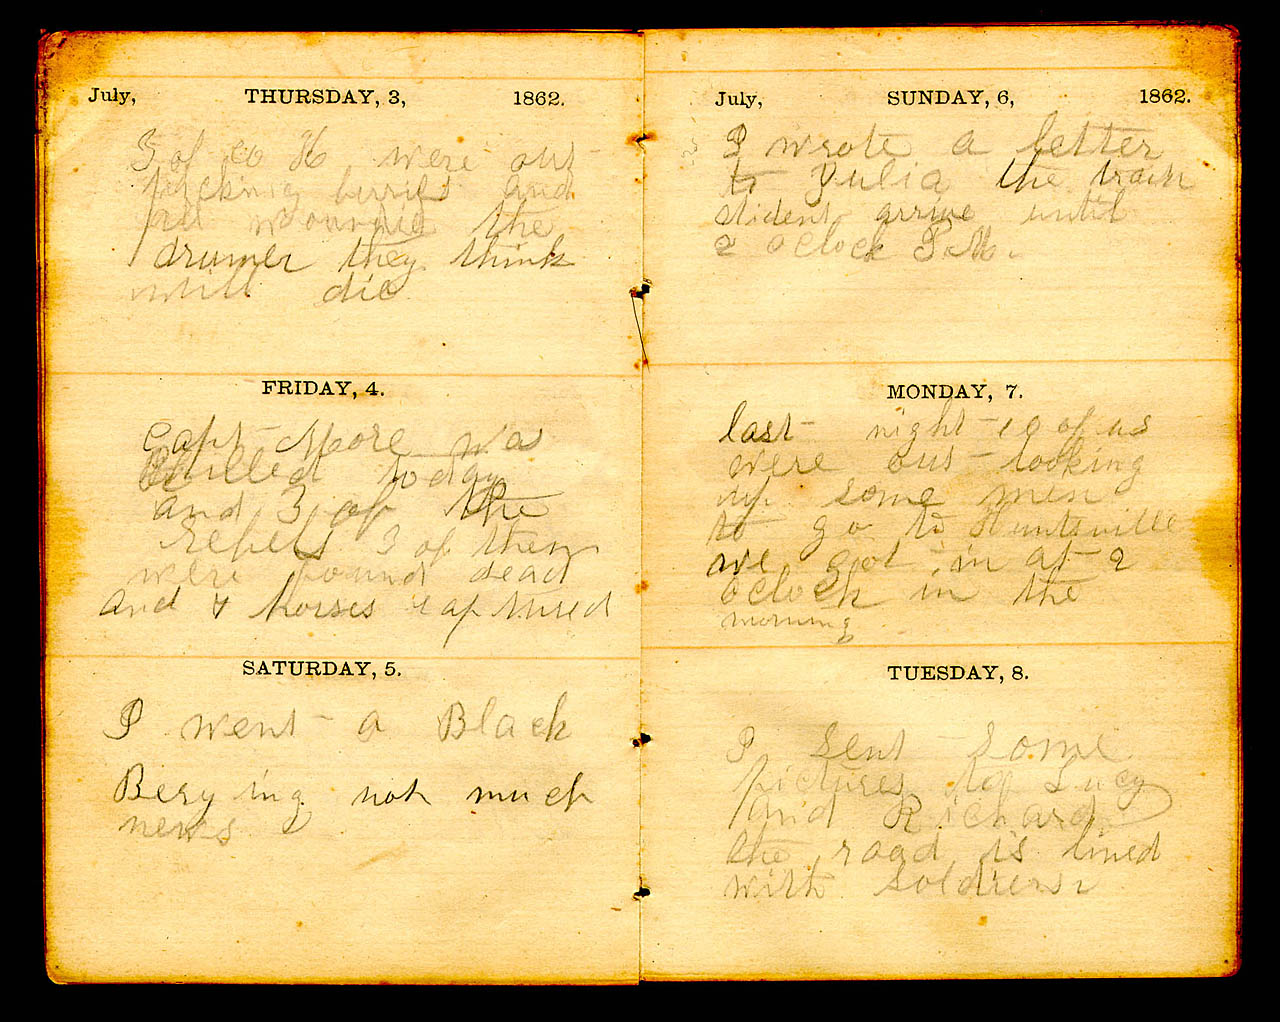 July, THURSDAY, 3, 1862.
5 of co H were out
picking berries and
all wounded the
drumer they think
will die
FRIDAY, 4.
Capt More wa
killed today
and 3 of the
Rebels 3 of them
were found dead
and 4 horses captured
SATURDAY, 5.
I went a Black
Berying not much
news
July, SUNDAY, 6, 1862.
I wrote a letter
to Julia the train
dident arrive until
2 oclock P.M.
MONDAY, 7.
last night 10 of us
were out looking
up some men
to go to Huntsville
we got in at 2
oclock in the
morning
TUESDAY, 8.
I sent some
pictures to Lucy
and Richard
the road is lined
with soldiers